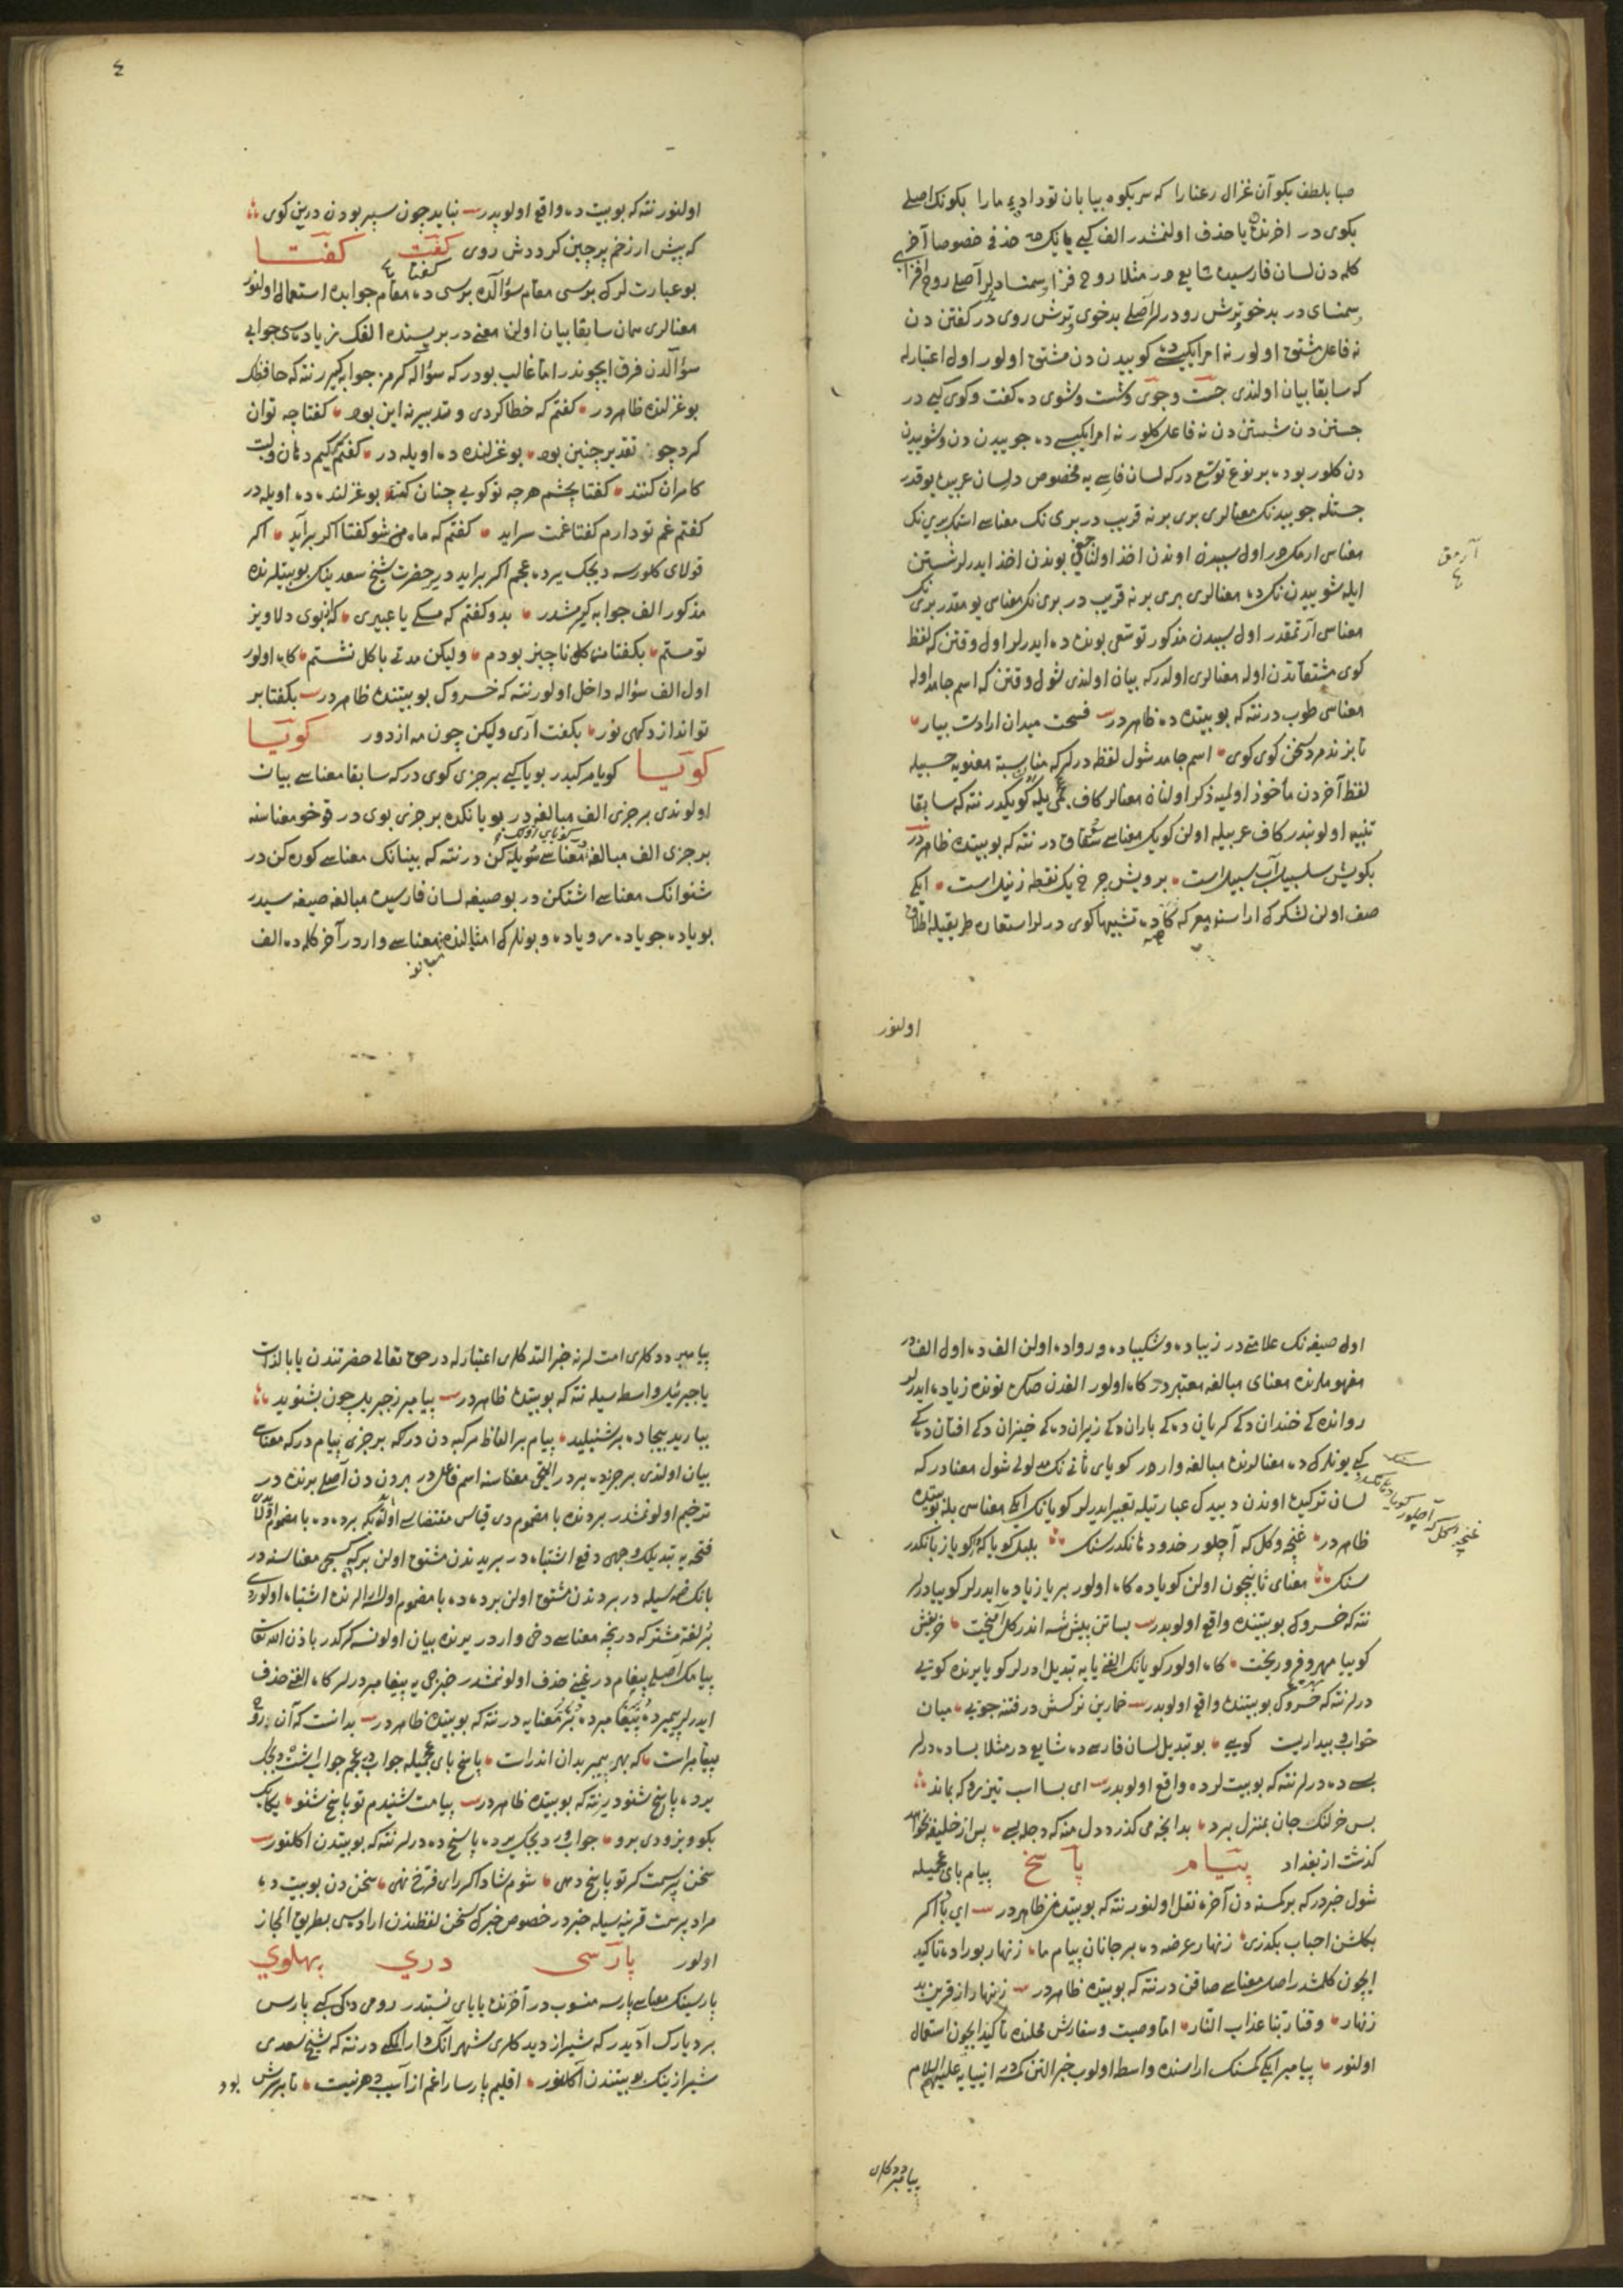 صبا بلطف بكو آن غزال رعنا را كه سر بكوه بيابان تو داده ما را بكونك اصلى
بكوى در اخرنده يا حذف اولنمشدر الف كبى يانك حذفى خصوصا آخر
كلمه دن لسان فارسيده شايع در مثلا روح فزا وسمنسا ديرلر آصلى روح افزاى
وسمنساى در بدخو ترش رو ديرلر آصلى بدخوى ترش روى در كفتن دن
نه فاعل مشتق اولور نه امر ايكيسى ده كوييدن دن مشتق اولور اول اعتبارله
كه سابقا بيان اولندى جست وجوى وشست وشوى ده كفت وكوى كبى در
جستن دن شستن دن نه فاعل كلور نه امر ايكيسى ده جوييدن دن وشوييدن
دن كلور بو ده بر نوع توسع در كه لسان فارسى يه مخصوص در لسان عربيده يوقدر
جستله جوييدنك معنالرى برى برنه قريب در برى نك معناسى استمك برى نك
معناسى ارمك در اول سببدن اوندن اخذ اولناجغى بوندن اخذ ايدرلر شستن
ايله شوييدن نك ده معنالرى برى برنه قريب در برى نك معناسى يومقدر برى نك
معناسى آرتمقدر اول سببدن مذكور توسعى بونده ده ايدرلر اول وقتن كه لفظ
كوى مشتقاتدن اوله معنالرى اولدر كه بيان اولندى شول وقتن كه اسم جامد اوله
معناسى طوب در نته كه بو بيتده ده ظاهردر فسحت ميدان ارادت بيار
تا بزند مرد سخن كوى كوى اسم جامد شول لفظ در لر كه مناسبة معنويه حسبيله
لفظ آخردن مأخوذ اولميه ذكر اولنان معنالر كاف عجمى يله كويكدر نته كه سابقا
تنبيه اولنوبدر كاف عربيله اولن كويك معناسى سوقاق در نته كه بو بيتده ظاهردر
بكويش سلسبيل آب سبيل است برويش چرخ يك نقطه زنيل است ايكى
صف اولن لشكرك اراسنه معركه كاه ده تشبيها كوى ديرلر استعاره طريقيله اطلاق
آرمق
اولنور
٤
اولنور نته كه بو بيت ده واقع اولوبدر نبايد چون سپر بودن درين كوى
كه پيش از زخم پر چين كرد دش روى كفت كفتا
بو عبارت لرك بريسى مقام سؤالده بريسى ده مقام جوابده استعمال اولنور
معنالرى همان سابقا بيان اولنن معنى در بريسنده الفك زياده سى جوابى
سؤالدن فرق ايچوندر اما غالب بودر كه سؤاله كرمز جوابه كيرر نته كه حافظك
بو غزلنده ظاهردر كفتم كه خطا كردى وتدبير نه اين بود كفتا چه توان
كرد چو تقدير چنين بود بو غزلنده ده اويله در كفتم كيم دهان ولبت
كامران كنند كفتا بچشم هر چه تو كويى چنان كنند بو غزلنده ده اويله در
كفتم غم تو دارم كفتا غمت سرايد كفتم كه ماه من شو كفتا اكر برآيد اكر
قولاى كلورسه ديجك يرده عجم اكر برايد دير حضرت شيخ سعدينك بو بيتلرنده
مذكور الف جوابه كيرمشدر بدو كفتم كه مسكى يا عبيرى كه از بوى دلاويز
تو مستم بكفتا من كلى ناچيز بودم وليكن مدتى با كل نشستم كاه اولور
اول الف سؤاله داخل اولور نته كه خسروك بو بيتنده ظاهردر بكفتا بر
تو اندازد كهى نور بكفت آرى وليكن چون مه از دور كويا
كويا كويا مركبدر بويا كبى بر جزى كوى در كه سابقا معناسى بيان
اولوندى بر جزى الف مبالغه در بويانكده بر جزى بوى در قوخو معناسنه
بر جزى الف مبالغه معناسى سويله كن در نته كه بينانك معناسى كوره كن در
شنوانك معناسى اشتكن در بو صيغه لسان فارسيده مبالغه صيغه سيدر
بوياده جوياده روياده وبونلرك امثالنده معناسى واردر آخر كلمه ده الف
مبالغه
اول صيغه نك علامتى در زيباده وشكيباده ورواده اولن الف ده اول الف در
مفهوملرنده معناى مبالغه معتبردر كاه اولور الفدن صكره نونده زياده ايدرلر
روانده كى خندان دكى كريان ده كى باران دكى زيران ده كى خيزان دكى افتان دكى
كبى بونلرك ده معنالرنده مبالغه واردر كوياى ثانى نك مدلولى شول معنادر كه
لسان تركيده اوندن ديبدك عبارتيله تعبير ايدرلر كويانك ايكى معناسى بله بو بيتده
ظاهردر غنچه وكل كه آچلور خدود هانكدر سنك بلبل كويا كه كويا ز بانكدر
سنك معناى ثانيچون اولن كوياده كاه اولور بر يا زياده ايدرلر كوييا ديرلر
نته كه خسروك بو بيتنده واقع اولوبدر بساتن پيش شه اندر كل آميخت خريفش
كوييا مهر وفرو ريخت كاه اولور كويانك الفنى يايه تبديل ادرلر كويا يرنده كويى
ديرلر نته كه خسروك بو بيتنده واقع اولوبدر خمارين نركسش در فتنه جويى ميان
خواب وبيداريت كويى بو تبديل لسان فارسى ده شايع در مثلا بساده ديرلر
بسى ده ديرلر نته كه بو بيت لرده واقع اولوبدر اى بسا اسب تيزرو كه بماند
بس خر لنك جان بمنزل برد بدانچه مى كذرد دل منه كه دجله بسى پس از خليفه بخواهد
كذشت از بغداد پيام پاسخ پيام باى عجميله
شول خبردر كه بر كمسنه دن آخره نقل اولنور نته كه بو بيتده ظاهردر اى باد اكر
بكلشن احباب بكذرى زنهار عرضه ده بر جانان پيام ما زنهار بوراده تاكيد
ايچون كلمشدر اصل معناسى صاقن در نته كه بو بيتده ظاهردر زينهار از قرين بد
زنهار وقنا ربنا عذاب النار اما وصيت وسفارش محلنده تأكيد ايچون استعمال
اولنور پيامبر ايكى كمسنك اراسنده واسطه اولوب خبر التن كمسه انبيايه عليهم السلام
غنچه وكل كه آچلور
پيامبر ددكلرى
٥
پيامبر ددكلرى امت لرنه خبر التدكلرى اعتبارله در حق تعالى حضرتندن يا بالذات
يا جبرئيل واسطه سيله نته كه بو بيتده ظاهردر پيامبر ز جبريل چون بشنويد
بياريد بيجاده بر شنبليد پيام بر الفاظ مركبه دن در كه بر جزى پيام در كه معناسى
بيان اولندى بر جزى ده بردر التجى معناسنه اسم فاعل در بردن دن آصلى برنده در
ترخيم اولونمشدر برنده با مضموم دى قياس مقتضاسى اولدر كه برده ده با مضموم اولا
فتحه يه تبديلك وجهى دفع اشتباه در بريدندن مشتق اولن بر كه كسيجى معناسنه در
بانك ضمه سيله در بردندن مشتق اولن برده ده با مضموم اولا ايرالرنده اشتباه اولوردى
بر لغة مشتركه در نجه معناسى دخى واردر يرنده بيان اولونسه كركدر باذن الله تعالى
پيامك اصلى پيغام در غينى حذف اولونمشدر خبرجى يه پيغامبر ديرلر كاه الفنى حذف
ايدرلر پيمبر ده پيغامبر ده بر معنايه در نته كه بو بيتده ظاهردر بدانست كه آن
پيامبر است كه بهر پيمبر بدان اندراست پاسخ باى عجميله جواب در عجم جواب اشت ديجك
يرده پاسخ شنو دير نته كه بو بيتده ظاهردر پيامت شنيدم تو پاسخ شنو يكايك
بكو وبزودى برو جواب ور ديجك يرده پاسخ ده ديرلر نته كه بو بيتدن اكلنور
سخن پرسمت كر تو پاسخ دهى شوم شاد اكر راى فرخ نهى سخن دن بو بيت ده
مراد پرسمت قرينه سيله خبردر خصوص خبرك سخن لفظندن اراده سى بطريق المجاز
اولور پارسى درى پهلوى
پارسينك معناسى پارسه منسوب در آخرنده ياياى نسبتدر رومى دكى كبى پارس
بر ديارك آديدر كه شيراز ديدكلرى شهر آنك دار الملكى در نته كه شيخ سعدى
شيرازينك بو بيتندن اكلنور اقليم پارس را غم از آسيب دهر نيست تا بر سرش بود